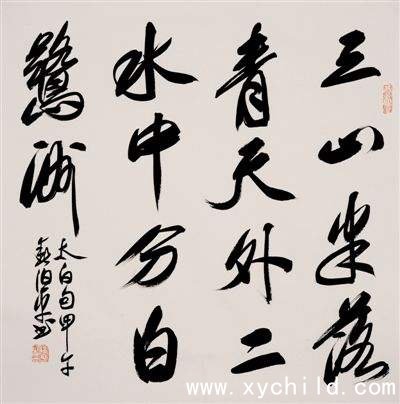 三山半落
青天外二
水中分白
鷺洲
太白句甲午
www.xychild.com